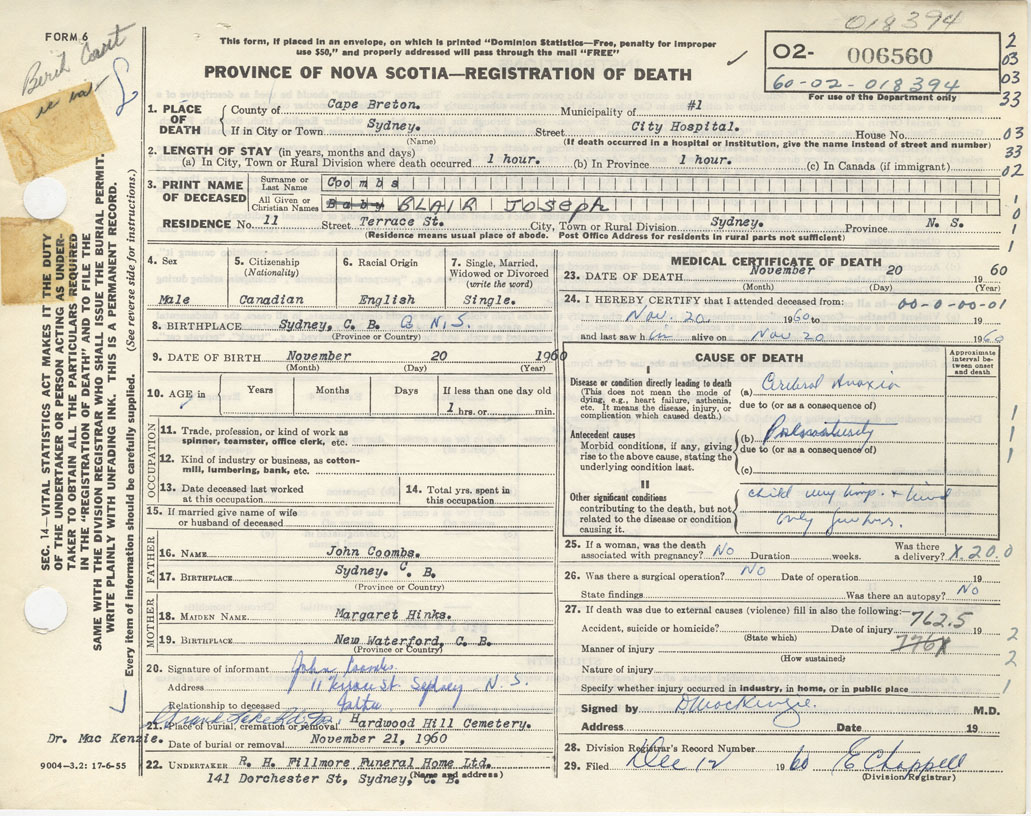 018394
FORM 6
This form, if placed in an envelope, on which is printed "Dominion Statistics—Free, penalty for improper
use $50," and properly addressed will pass through the mail "FREE"
PROVINCE OF NOVA SCOTIA—REGISTRATION OF DEATH
02- 006560
60-02-018394
For use of the Department only
2
03
03
33
03
33
02
1
0
1
1
1. PLACE OF DEATH
County of Cape Breton. Municipality of #1
If in City or Town Sydney. Street City Hospital. House No.
(Name) (If death occurred in a hospital or institution, give the name instead of street and number)
2. LENGTH OF STAY (in years, months and days)
(a) In City, Town or Rural Division where death occurred 1 hour. (b) In Province 1 hour. (c) In Canada (if immigrant)
3. PRINT NAME OF DECEASED
Surname or Last Name Coombs
All Given or Christian Names Baby BLAIR JOSEPH
RESIDENCE No. 11 Street Terrace St. City, Town or Rural Division Sydney. Province N. S.
(Residence means usual place of abode. Post Office Address for residents in rural parts not sufficient)
4. Sex
Male
5. Citizenship
(Nationality)
Canadian
6. Racial Origin
English
7. Single, Married, Widowed or Divorced
(write the word)
Single.
8. BIRTHPLACE Sydney, C. B. N.S.
(Province or Country)
9. DATE OF BIRTH November 20 1960
(Month) (Day) (Year)
10. AGE in Years Months Days If less than one day old
1 hrs. or min.
OCCUPATION
11. Trade, profession, or kind of work as
spinner, teamster, office clerk, etc.
12. Kind of industry or business, as cotton-
mill, lumbering, bank, etc.
13. Date deceased last worked
at this occupation
14. Total yrs. spent in
this occupation
15. If married give name of wife
or husband of deceased
FATHER
16. NAME John Coombs.
17. BIRTHPLACE Sydney. C. B.
(Province or Country)
MOTHER
18. MAIDEN NAME Margaret Hinks.
19. BIRTHPLACE New Waterford, C. B.
(Province or Country)
20. Signature of informant John Coombs
Address 11 St Sydney N. S.
Relationship to deceased father
21. Place of burial, cremation or removal Hardwood Hill Cemetery.
Date of burial or removal November 21, 1960
Dr. Mac Kenzie.
22. UNDERTAKER R. H. Fillmore Funeral Home Ltd.
141 Dorchester St, Sydney,
(Name and address)
9004-3.2: 17-6-55
SEC. 14—VITAL STATISTICS ACT MAKES IT THE DUTY
OF THE UNDERTAKER OR PERSON ACTING AS UNDER-
TAKER TO OBTAIN ALL THE PARTICULARS REQUIRED
IN THE "REGISTRATION OF DEATH" AND TO FILE THE
SAME WITH THE DIVISION REGISTRAR WHO SHALL ISSUE THE BURIAL PERMIT.
WRITE PLAINLY WITH UNFADING INK. THIS IS A PERMANENT RECORD.
Every item of information should be carefully supplied. (See reverse side for instructions.)
MEDICAL CERTIFICATE OF DEATH
23. DATE OF DEATH November 20 1960
(Month) (Day) (Year)
24. I HEREBY CERTIFY that I attended deceased from: 00-0-00-01
Nov. 20 1960 to 19
and last saw him alive on Nov 20 1960
CAUSE OF DEATH
Approximate interval between onset and death
I
Disease or condition directly leading to death
(This does not mean the mode of
dying, e.g., heart failure, asthenia,
etc. It means the disease, injury, or
complication which caused death.)
(a) Cerebral Anoxia
due to (or as a consequence of)
Antecedent causes
Morbid conditions, if any, giving
rise to the above cause, stating the
underlying condition last.
(b) Prematurity
due to (or as a consequence of)
(c)
II
Other significant conditions
contributing to the death, but not
related to the disease or condition
causing it.
child
only
1
1
1
1
25. If a woman, was the death
associated with pregnancy? No Duration weeks. Was there
a delivery? X 20.0
26. Was there a surgical operation? No Date of operation 19
State findings Was there an autopsy? No
27. If death was due to external causes (violence) fill in also the following:—
762.5
Accident, suicide or homicide? Date of injury 19
(State which)
776X
Manner of injury
(How sustained)
Nature of injury
Specify whether injury occurred in industry, in home, or in public place
2
2
1
Signed by D MacKenzie. M.D.
Address Date 19
28. Division Registrar's Record Number
29. Filed Dec 12 1960 E Chappell
(Division Registrar)